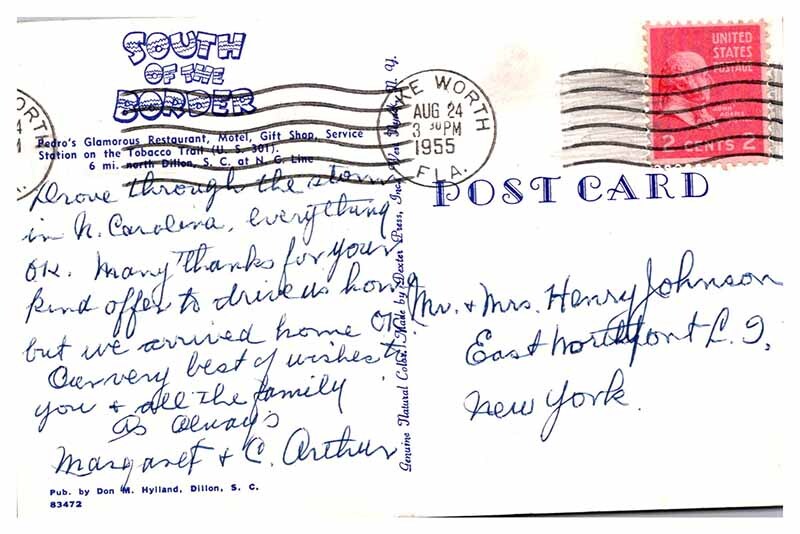 SOUTH
OF THE
BORDER
Pedro's Glamorous Restaurant, Motel, Gift Shop, Service
Station on the Tobacco Trail (U. S. 301).
6 mi. north Dillon, S. C. at N. C. Line
Drove through the storm
in N. Carolina, everything
OK. Many thanks for your
kind offer to drive us home
but we arrived home OK.
Our very best of wishes to
you + all the family
As always
Margaret + C. Arthur
Pub. by Don M. Hylland, Dillon, S. C.
83472
Genuine Natural Color Made by Dexter Press, Inc., West Nyack, N. Y.
LAKE WORTH
AUG 24
3 30 PM
1955
FLA.
UNITED
STATES
POSTAGE
2 CENTS 2
POST CARD
Mr. + Mrs. Henry Johnson
East Northport L. I.,
New York.